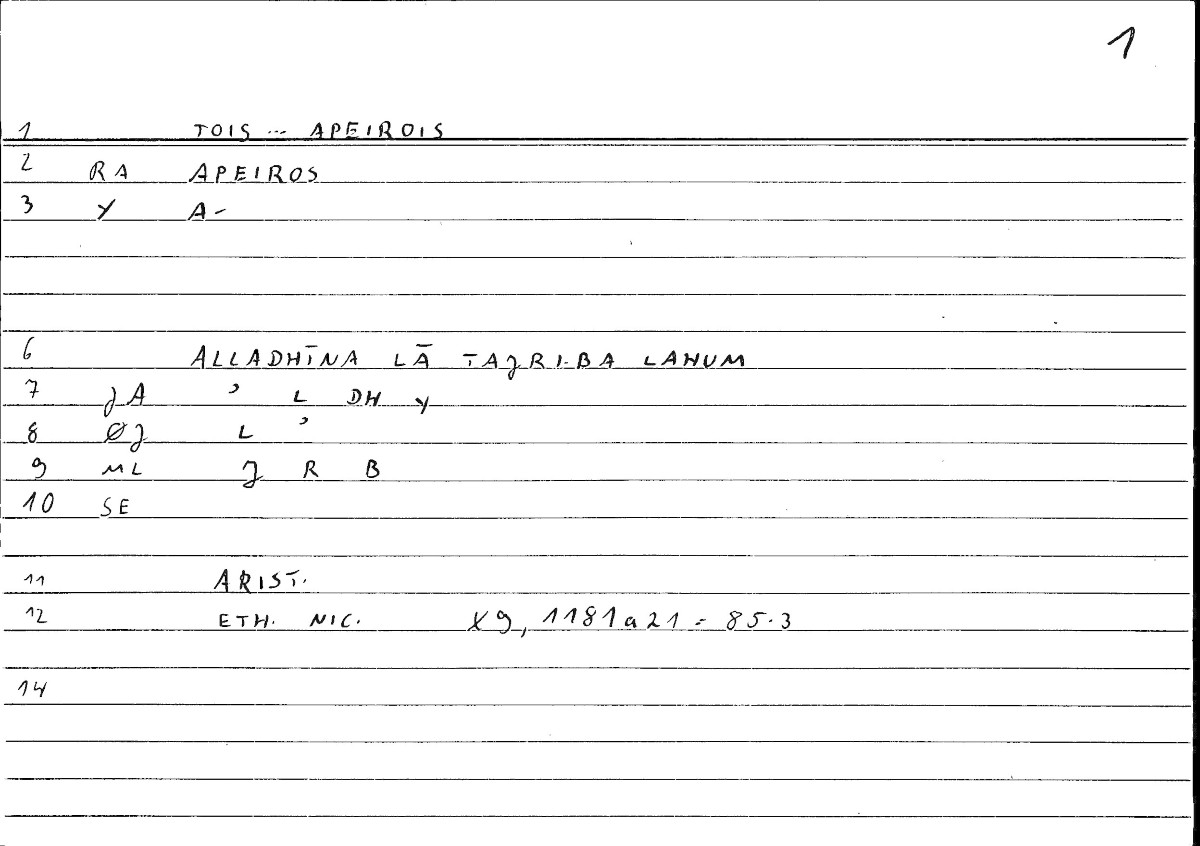 1
1 TOIS ... APEIROIS
2 RA APEIROS
3 Y A-
6 ALLADHĪNA LĀ TAJRIBA LAHUM
7 JA ʾ L DH Y
8 ØJ L ʾ
9 ML J R B
10 SE
11 ARIST.
12 ETH. NIC. X9, 1181a21 = 85.3
14